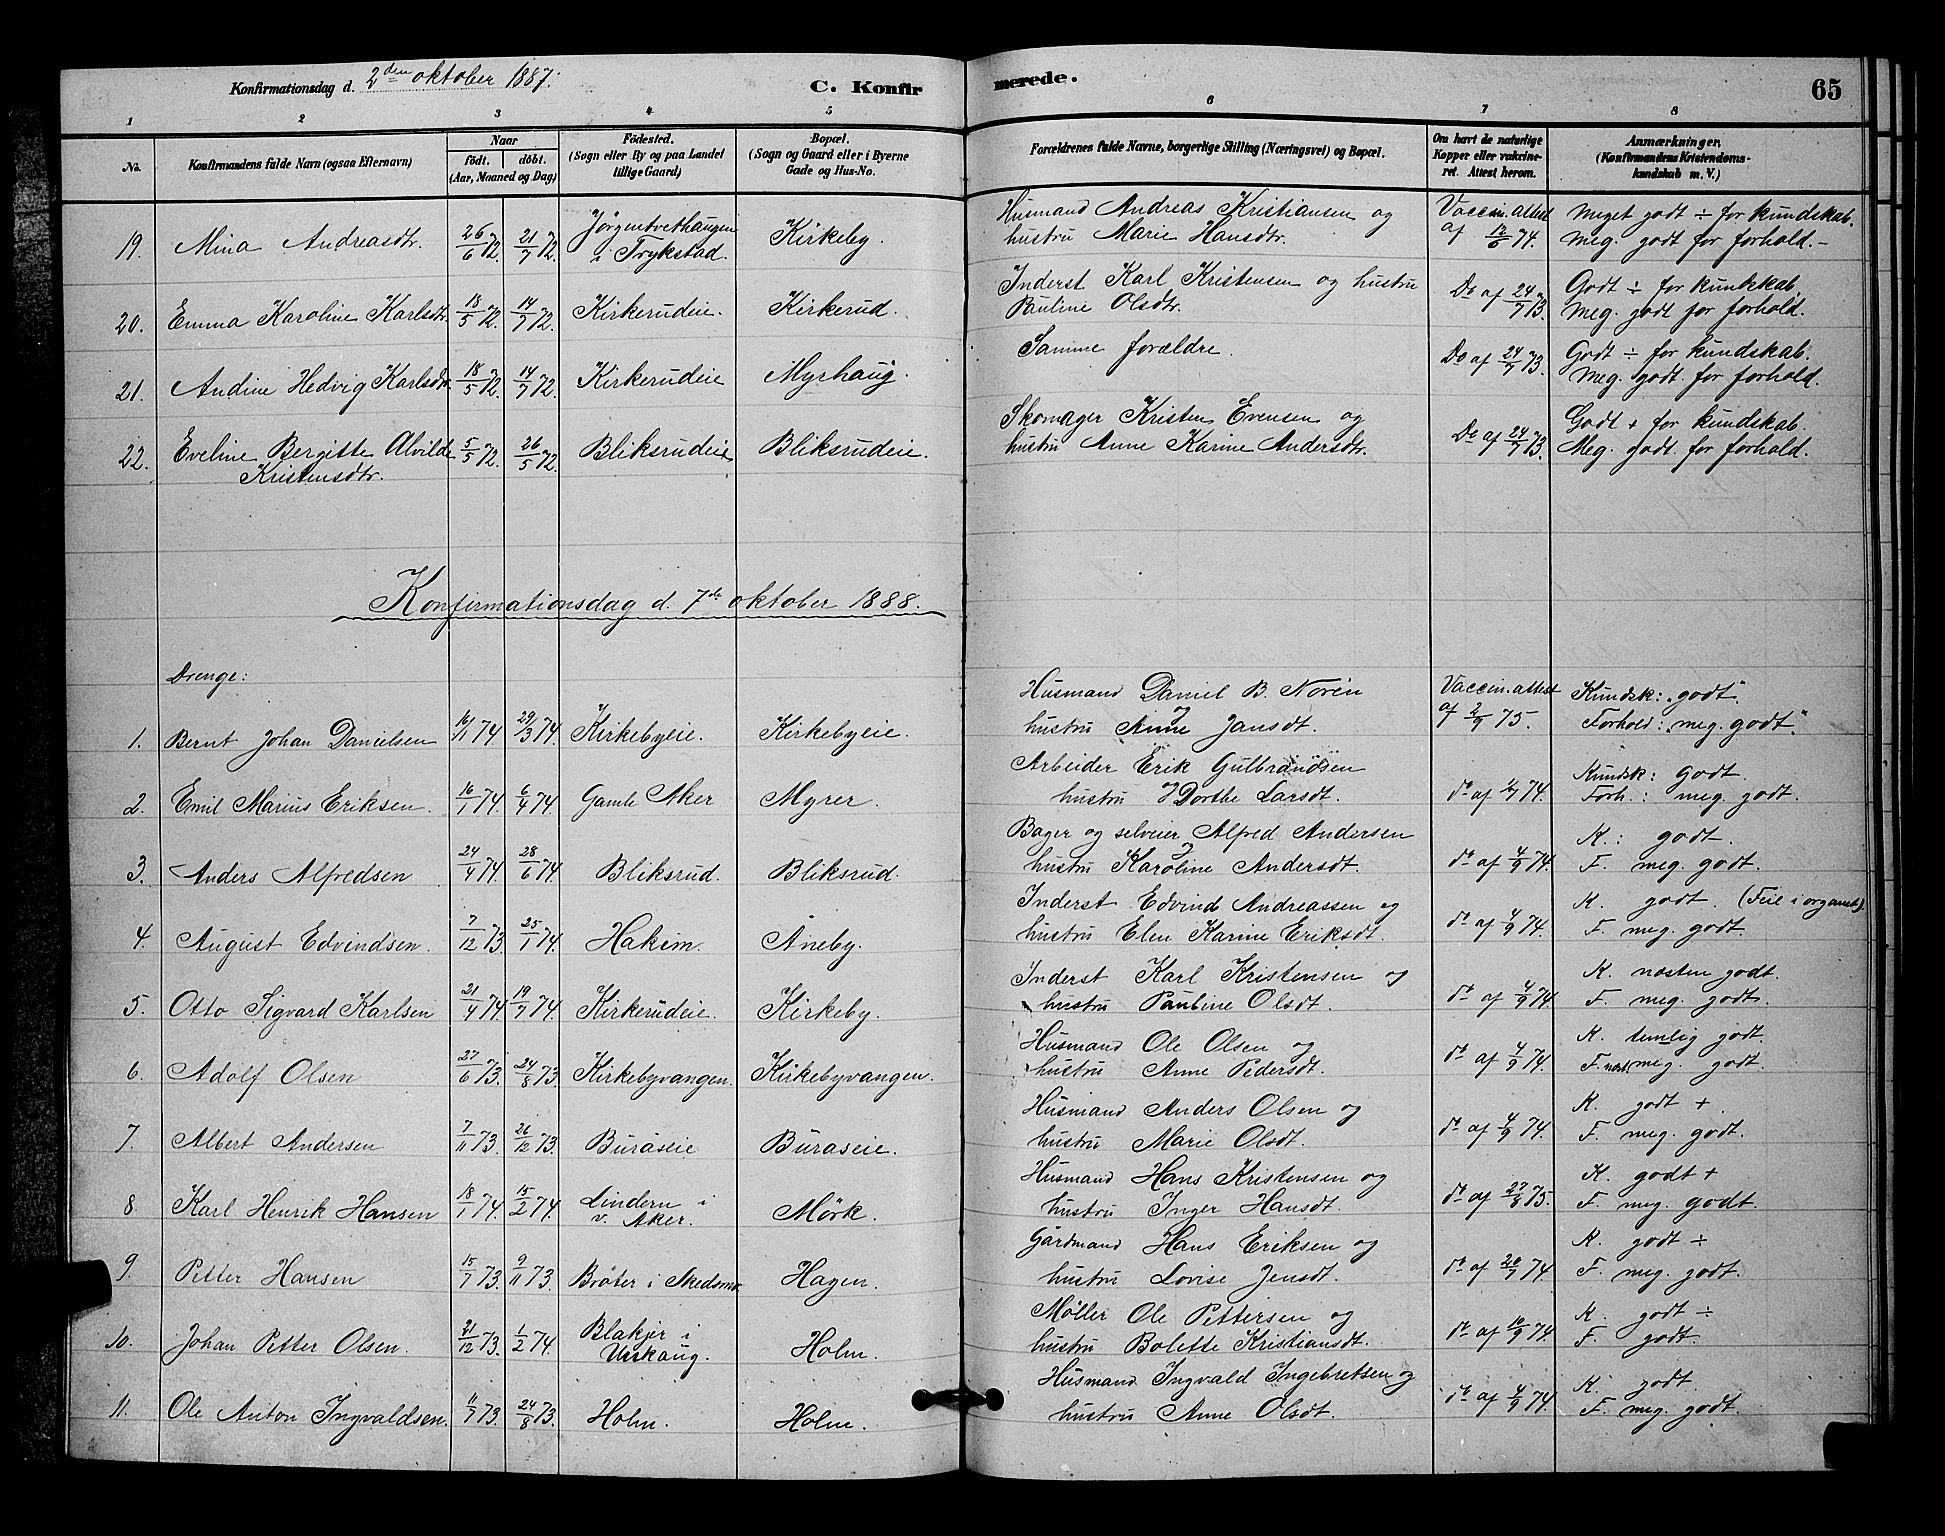 Konfirmationsdag d. 2den oktober 1887. C. Konfirmerede. 65
1 2 3 4 5 6 7 8
No. Konfirmandens fulde Navn (ogsaa Efternavn) Naar födt. döbt. (Aar, Maaned og Dag) Födested. (Sogn eller By og paa Landet tillige Gaard) Bopæl. (Sogn og Gaard eller i Byerne Gade og Hus-No. Forældrenes fulde Navne, borgerlige Stilling (Næringsvei) og Bopæl. Om havt de naturlige Kopper eller vakcineret. Attest herom. Anmærkninger. (Konfirmandens Kristendomskundskab m. V.)
19. Mina Andreasdtr. 26/6 72. 21/7 72. Jörgentvethaugen i Trykstad. Kirkeby. Husmand Andreas Kristiansen og hustru Marie Hansdtr. Vaccin. attest af 12/6 74. Meget godt ÷ for kundskab. Meg. godt for forhold. -
20. Emma Karoline Karlsdtr. 18/5 72. 14/7 72. Kirkerudeie. Kirkerud. Inderst Karl Kristensen og hustru Pauline Olsdtr. Do af 24/7 73. Godt ÷ for kundskab. Meg. godt for forhold.
21. Andine Hedvig Karlsdtr. 18/5 72. 14/7 72. Kirkerudeie Myrhaug. Samme forældre. Do af 24/7 73. Godt ÷ for kundskab. Meg. godt. for forhold.
22. Eveline Bergitte Alvilde Kristensdtr. 5/5 72. 26/5 72. Bliksrudeie Bliksrudeie. Skomager Kristen Evensen og hustru Anne Karine Andersdtr. Do af 24/7 73. Godt + for kundskab. Meg. godt. for forhold.
Konfirmationsdag d. 7de oktober 1888.
Drenge:
1. Bernt Johan Danielsen 16/1 74. 29/3 74. Kirkebyeie. Kirkebyeie. Husmand Daniel B. Norén hustru Anne Jansdt. Vaccin. attest af 2/9 75. Kundsk: "godt". Forhold: "meg. godt"
2. Emil Marius Eriksen. 16/1 74. 6/4 74. Gamle Aker Myrer. Arbeider Erik Gulbrandsen hustru Dorthe Larsdt. do af 74. Kundsk: Godt. Forh.: meg. godt.
3. Anders Alfredsen 24/4 74. 28/6 74. Bliksrud. Bliksrud. Bager og selveier Alfred Andersen hustru Karoline Andersdt. do af 4/9 74. K.: godt. F. meg. godt.
4. August Edvindsen. 7/12 73. 25/1 74. Hakim. Åneby. Inderst Edvind Andreassen og hustru Elen Karine Eriksdt. do af 4/9 74. K. godt. (Feil i organet). F. meg. godt.
5. Otto Sigvard Karlsen 21/4 74. 19/7 74. Kirkerudeie. Kirkeby. Inderst Karl Kristensen og hustru Pauline Olsdt. do af 4/9 74 K. næsten godt. F. meg. godt.
6. Adolf Olsen 27/6 73. 24/8 73. Kirkebyvangen. Kirkebyvangen. Husmand Ole Olsen og hustru Anne Pedersdt. do af 4/9 74. K. temlig godt. F. næst. meg. godt.
7. Albert Andersen 7/11 73. 26/12 73. Buråseie Buraseie. Husmand Anders Olsen og hustru Marie Olsdt. do af 4/9 74. K. godt +. F. meg. godt.
8. Karl Henrik Hansen 18/1 74. 15/2 74. Lindern i v. Aker. Mörk. Husmand Hans Kristensen og hustru Inger Hansdt. do af 27/8 75. K. godt + F. meg. godt.
9. Petter Hansen 15/7 73. 9/11 73. Bråter i Skedsmo. Hagen. Gårdmand Hans Eriksen og hustru Lovise Jensdt. do af 20/7 74. K. godt ÷ F. meg. godt.
10. Johan Petter Olsen. 21/12 73. 1/2 74. Blakjer i Urskaug. Holm. Möller Ole Pettersen og hustru Bolette Kristiansdt. do af 10/9 74. K. godt ÷ F. godt.
11. Ole Anton Ingvaldsen. 11/7 73. 24/8 73. Holm. Holm. Husmand Ingvald Ingebretsen og hustru Anne Olsdt. do af 4/9 74. K. godt. F. meg. godt.